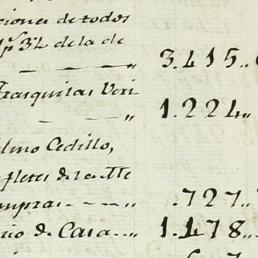 ciones de todos
de la de
3.415..
Frasquitas Veri
1.224..
elmo Cedillo,
fletes de
.727..
ompras
1.178..
rio de Casa